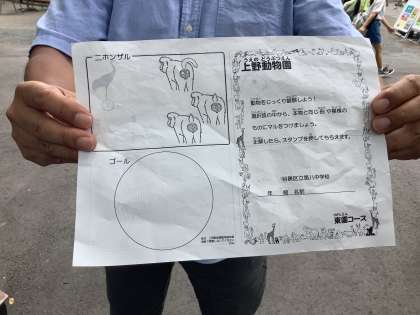 ニホンザル
ゴール
うえの どうぶつえん
上野動物園
動物をじっくり観察しよう！
選択肢の中から、本物と同じ色や模様の
ものにマルをつけましょう。
全部したら、スタンプを押してもらえます。
年 組 名前
東園コース